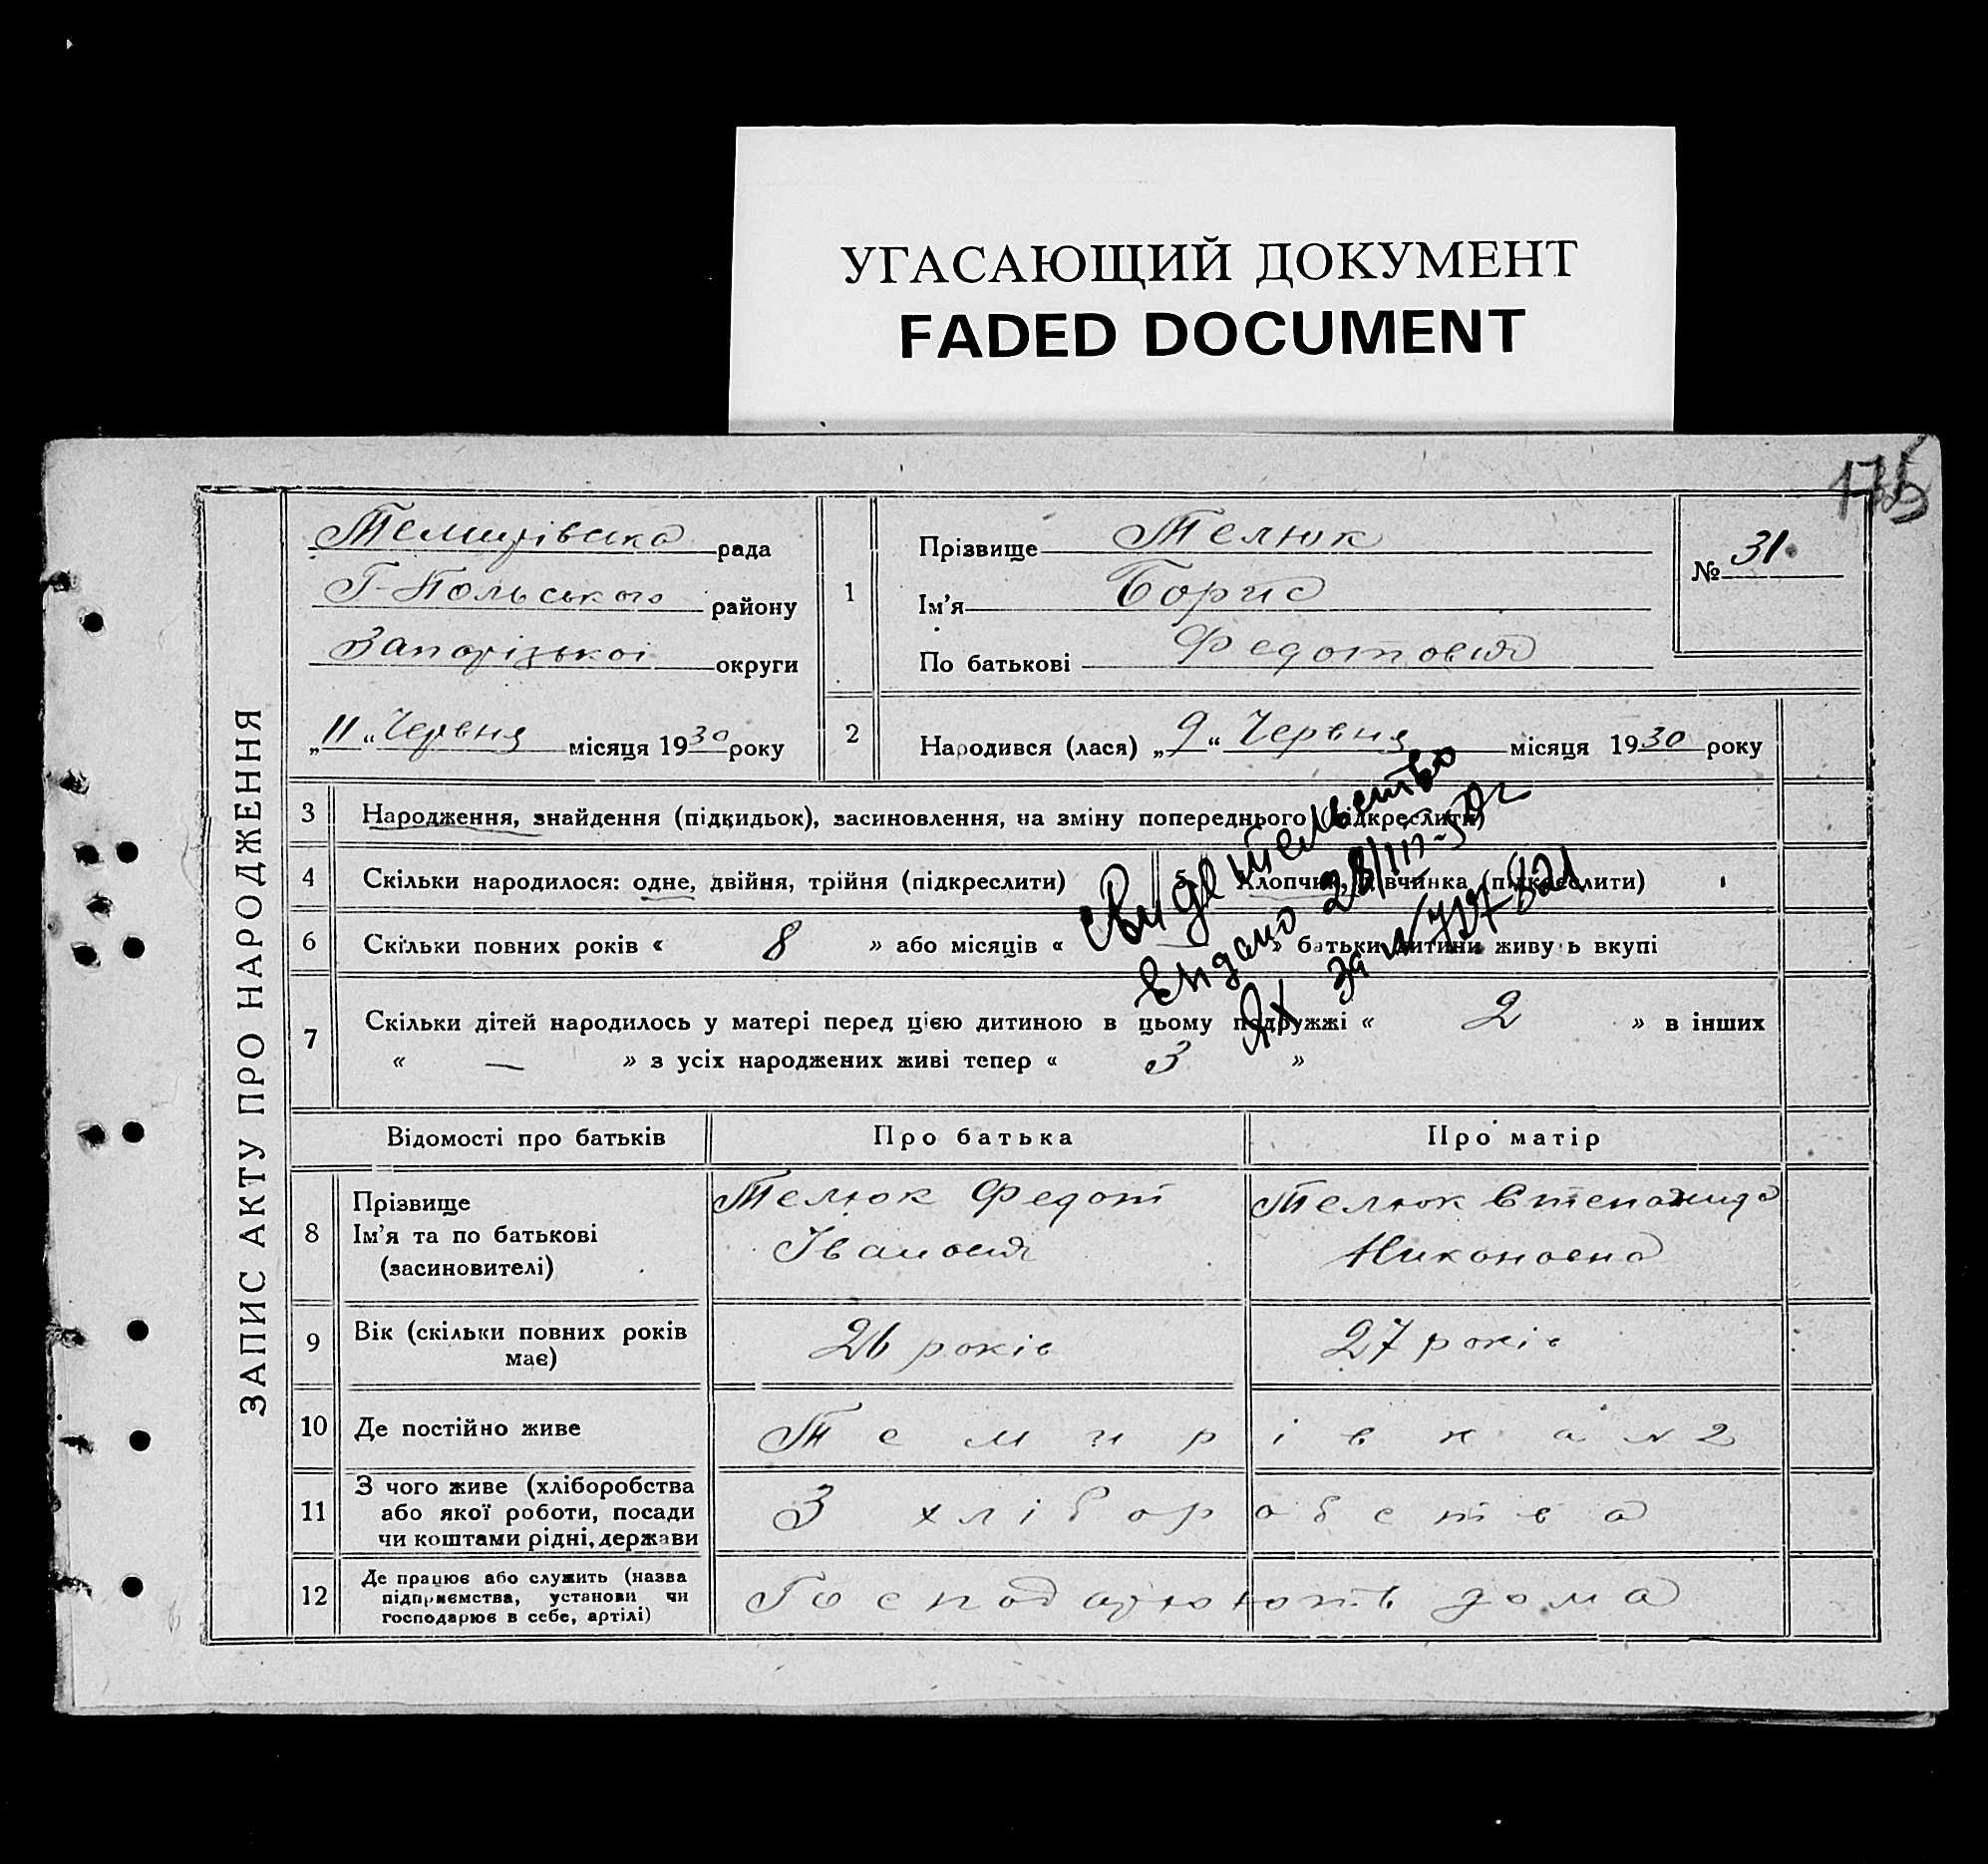 УГАСАЮЩИЙ ДОКУМЕНТ
FADED DOCUMENT
175
ЗАПИС АКТУ ПРО НАРОДЖЕННЯ
Темирівська рада
Г-Польського району
Запорізької округи
„11“ Червня місяця 1930 року
1
Прізвище Телюк
Ім'я Борис
По батькові Федотович
№ 31
2 Народився (лася) „9“ Червня місяця 1930 року
3 Народження, знайдення (підкидьок), засиновлення, на зміну попереднього (підкреслити)
4 Скільки народилося: одне, двійня, трійня (підкреслити) 5 Хлопчик, дівчинка (підкреслити)
6 Скільки повних років « 8 » або місяців « — » батьки дитини живуть вкупі
7 Скільки дітей народилось у матері перед цією дитиною в цьому подружжі « 2 » в інших
« — » з усіх народжених живі тепер « 3 »
Свидетельство
выдано 28/III
за №
Відомості про батьків Про батька Про матір
8 Прізвище
Ім'я та по батькові
(засиновителі)
Телюк Федот
Іванович
Телюк Степанида
Никоновна
9 Вік (скільки повних років
має)
26 років 27 років
10 Де постійно живе Темирівка №2
11 З чого живе (хліборобства
або якої роботи, посади
чи коштами рідні, держави
З хліборобства
12 Де працює або служить (назва
підприємства, установи чи
господарює в себе, артілі)
Господарюють дома